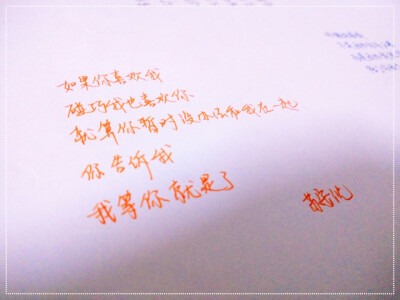 如果你喜欢我
碰巧我也喜欢你
就算你暂时没办法和我在一起
你告诉我
我等你就是了